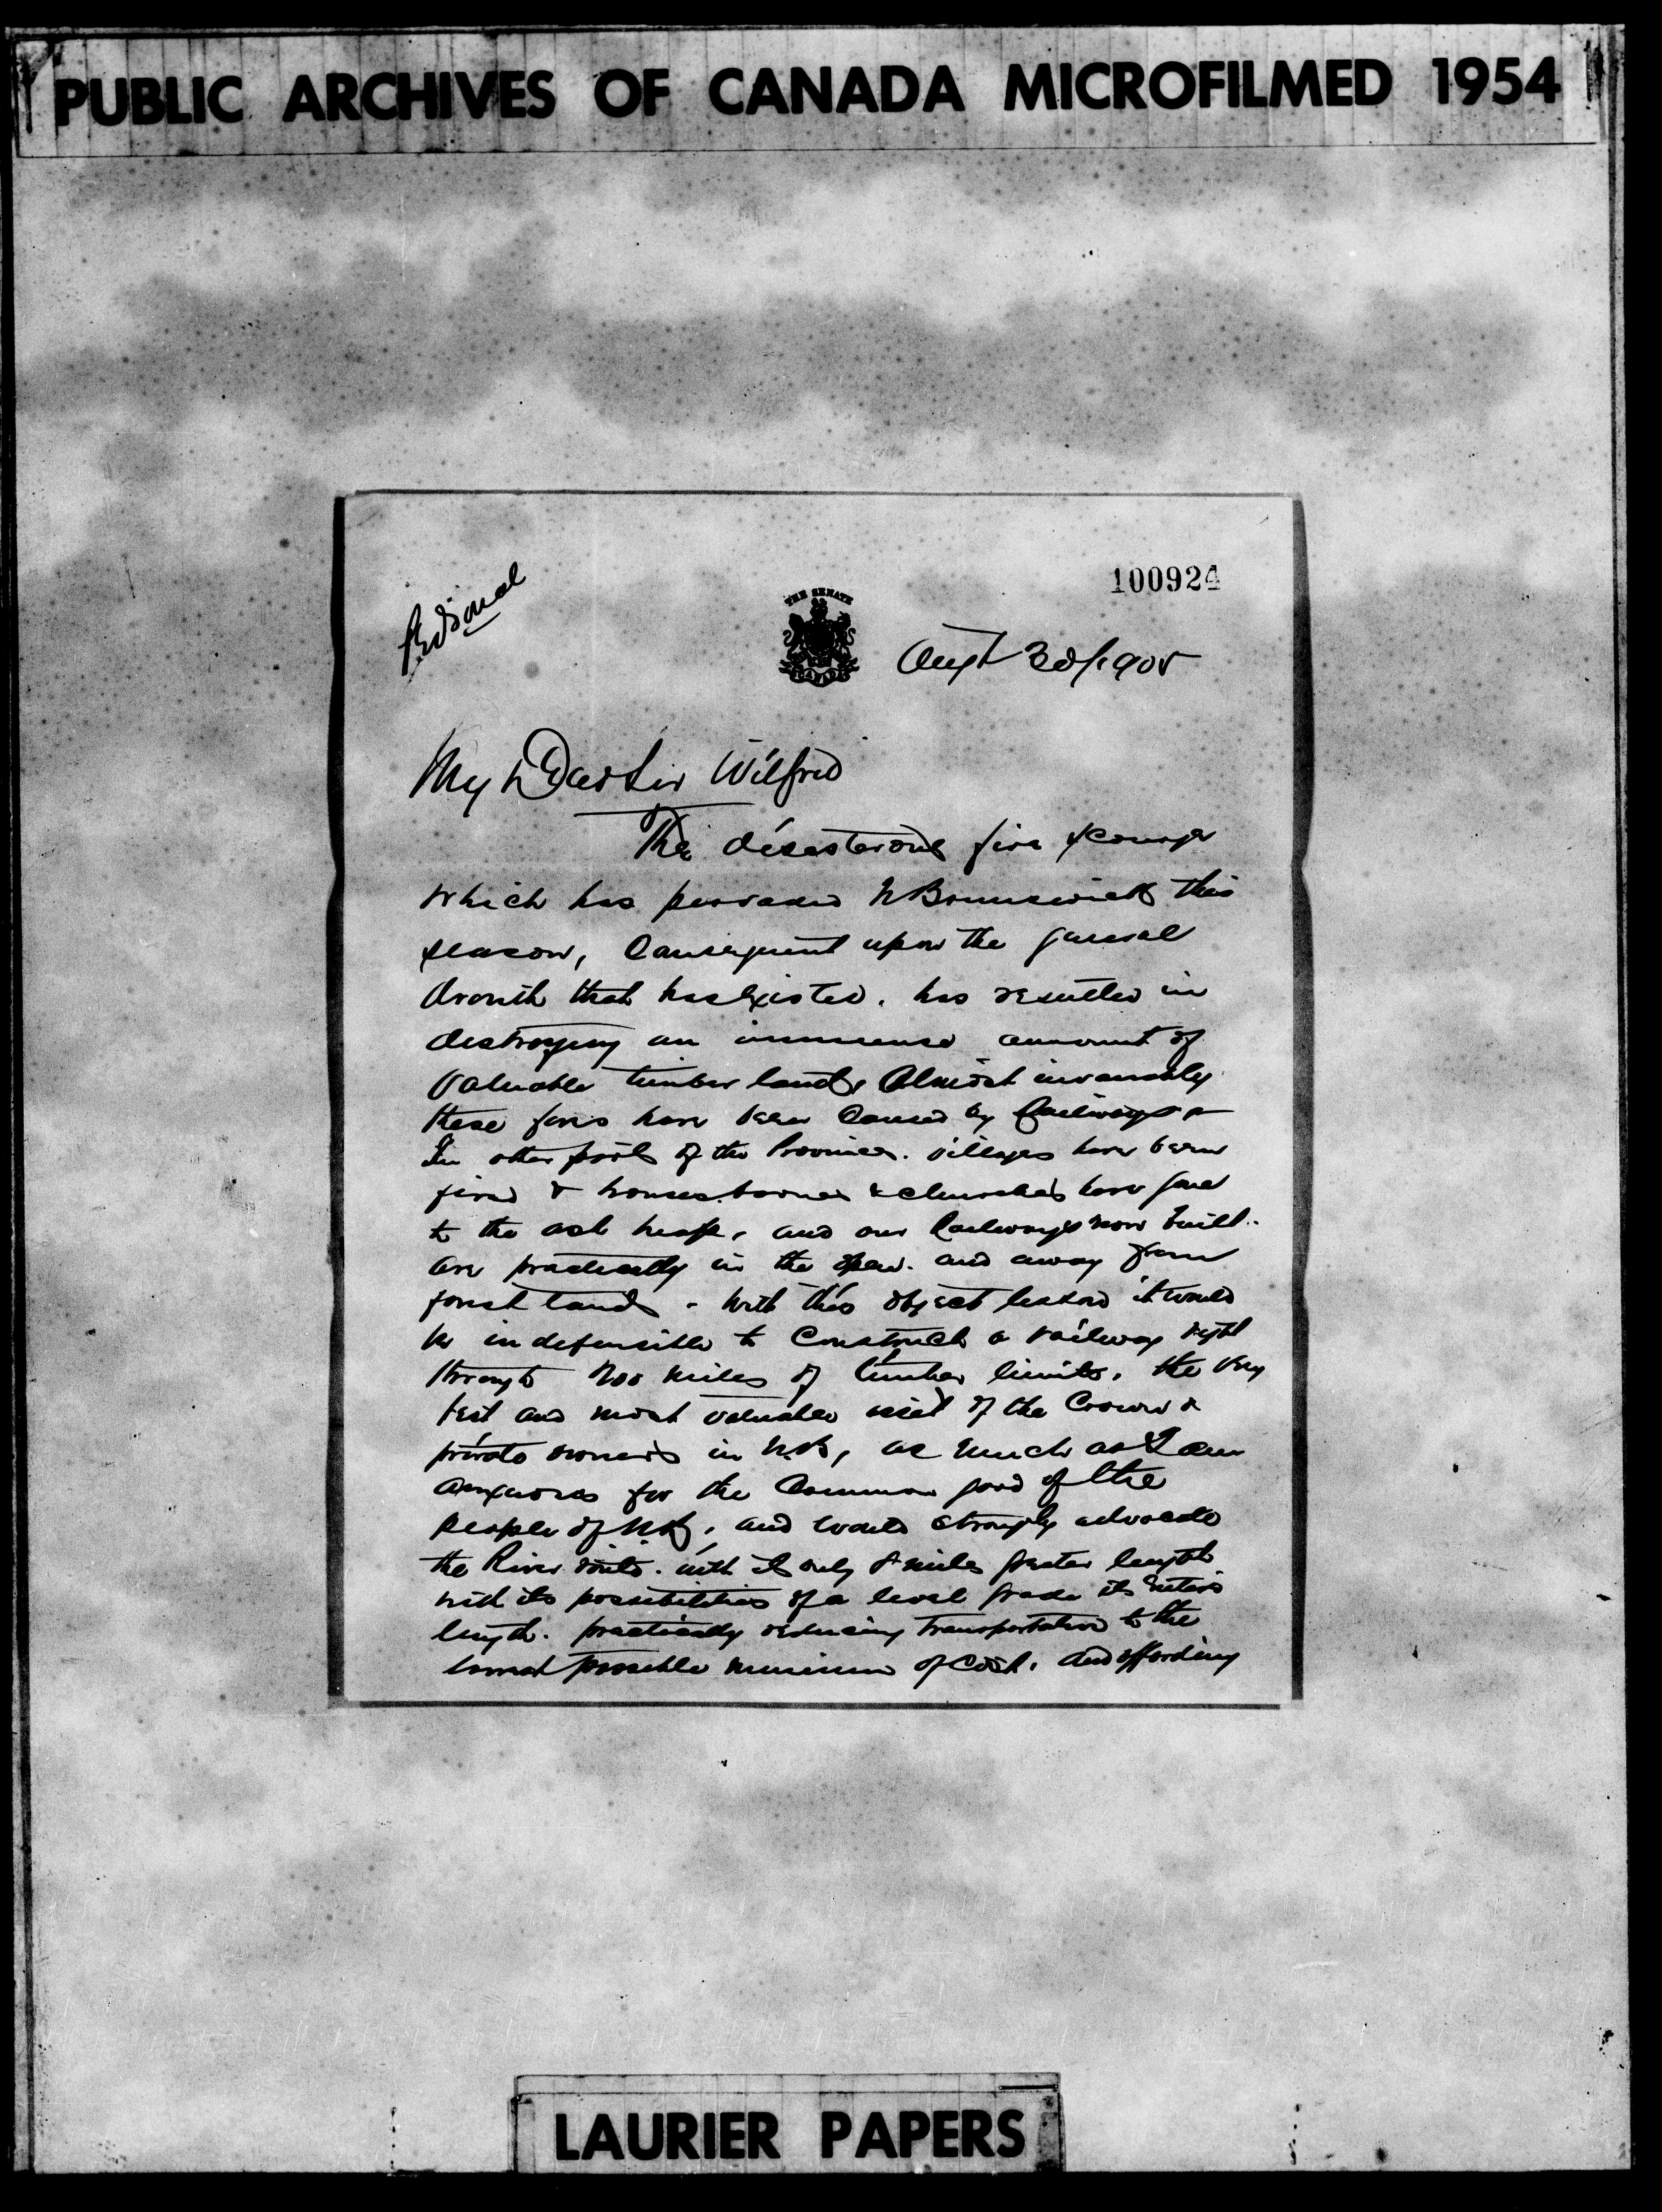 PUBLIC ARCHIVES OF CANADA MICROFILMED 1954
100924
Personal
THE SENATE
CANADA
Augt 30/1905
My Dear Sir Wilfrid
The disasterous fire scourge
which has pervaded N Brunswick this
season, Consequent upon the general
drouth that has Existed, has resulted in
destroying an immense amount of
Valuable timber lands, Almost invariably
these fires have been Caused by Railways
In other parts of the Province. villages have been
fired & houses barnes & churches have gone
to the ash heap, and our Railways now built
are practically in the open. and away from
forest lands. With this object lesson it would
be indefensible to Construct a railway right
through 200 miles of timber limits, the very
best and most valuable asset of the Crown &
private owners in N.B, as much as I am
anxious for the Common good of the
people of N.B, and would strongly advocate
the River route. with it only 8 miles greater length
with its possibilities of a level grade its Entire
length. practically reducing transportation to the
lowest possible minimum of Cost. and affording
LAURIER PAPERS